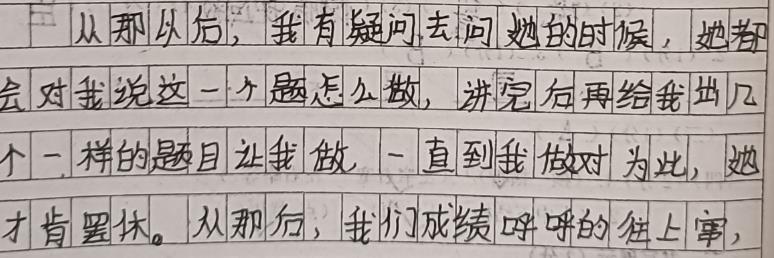 从那以后，我有疑问去问她的时候，她都
会对我说这一个题怎么做，讲完后再给我出几
个一样的题目让我做，一直到我做对为此，她
才肯罢休。从那后，我们成绩呼呼的往上窜，